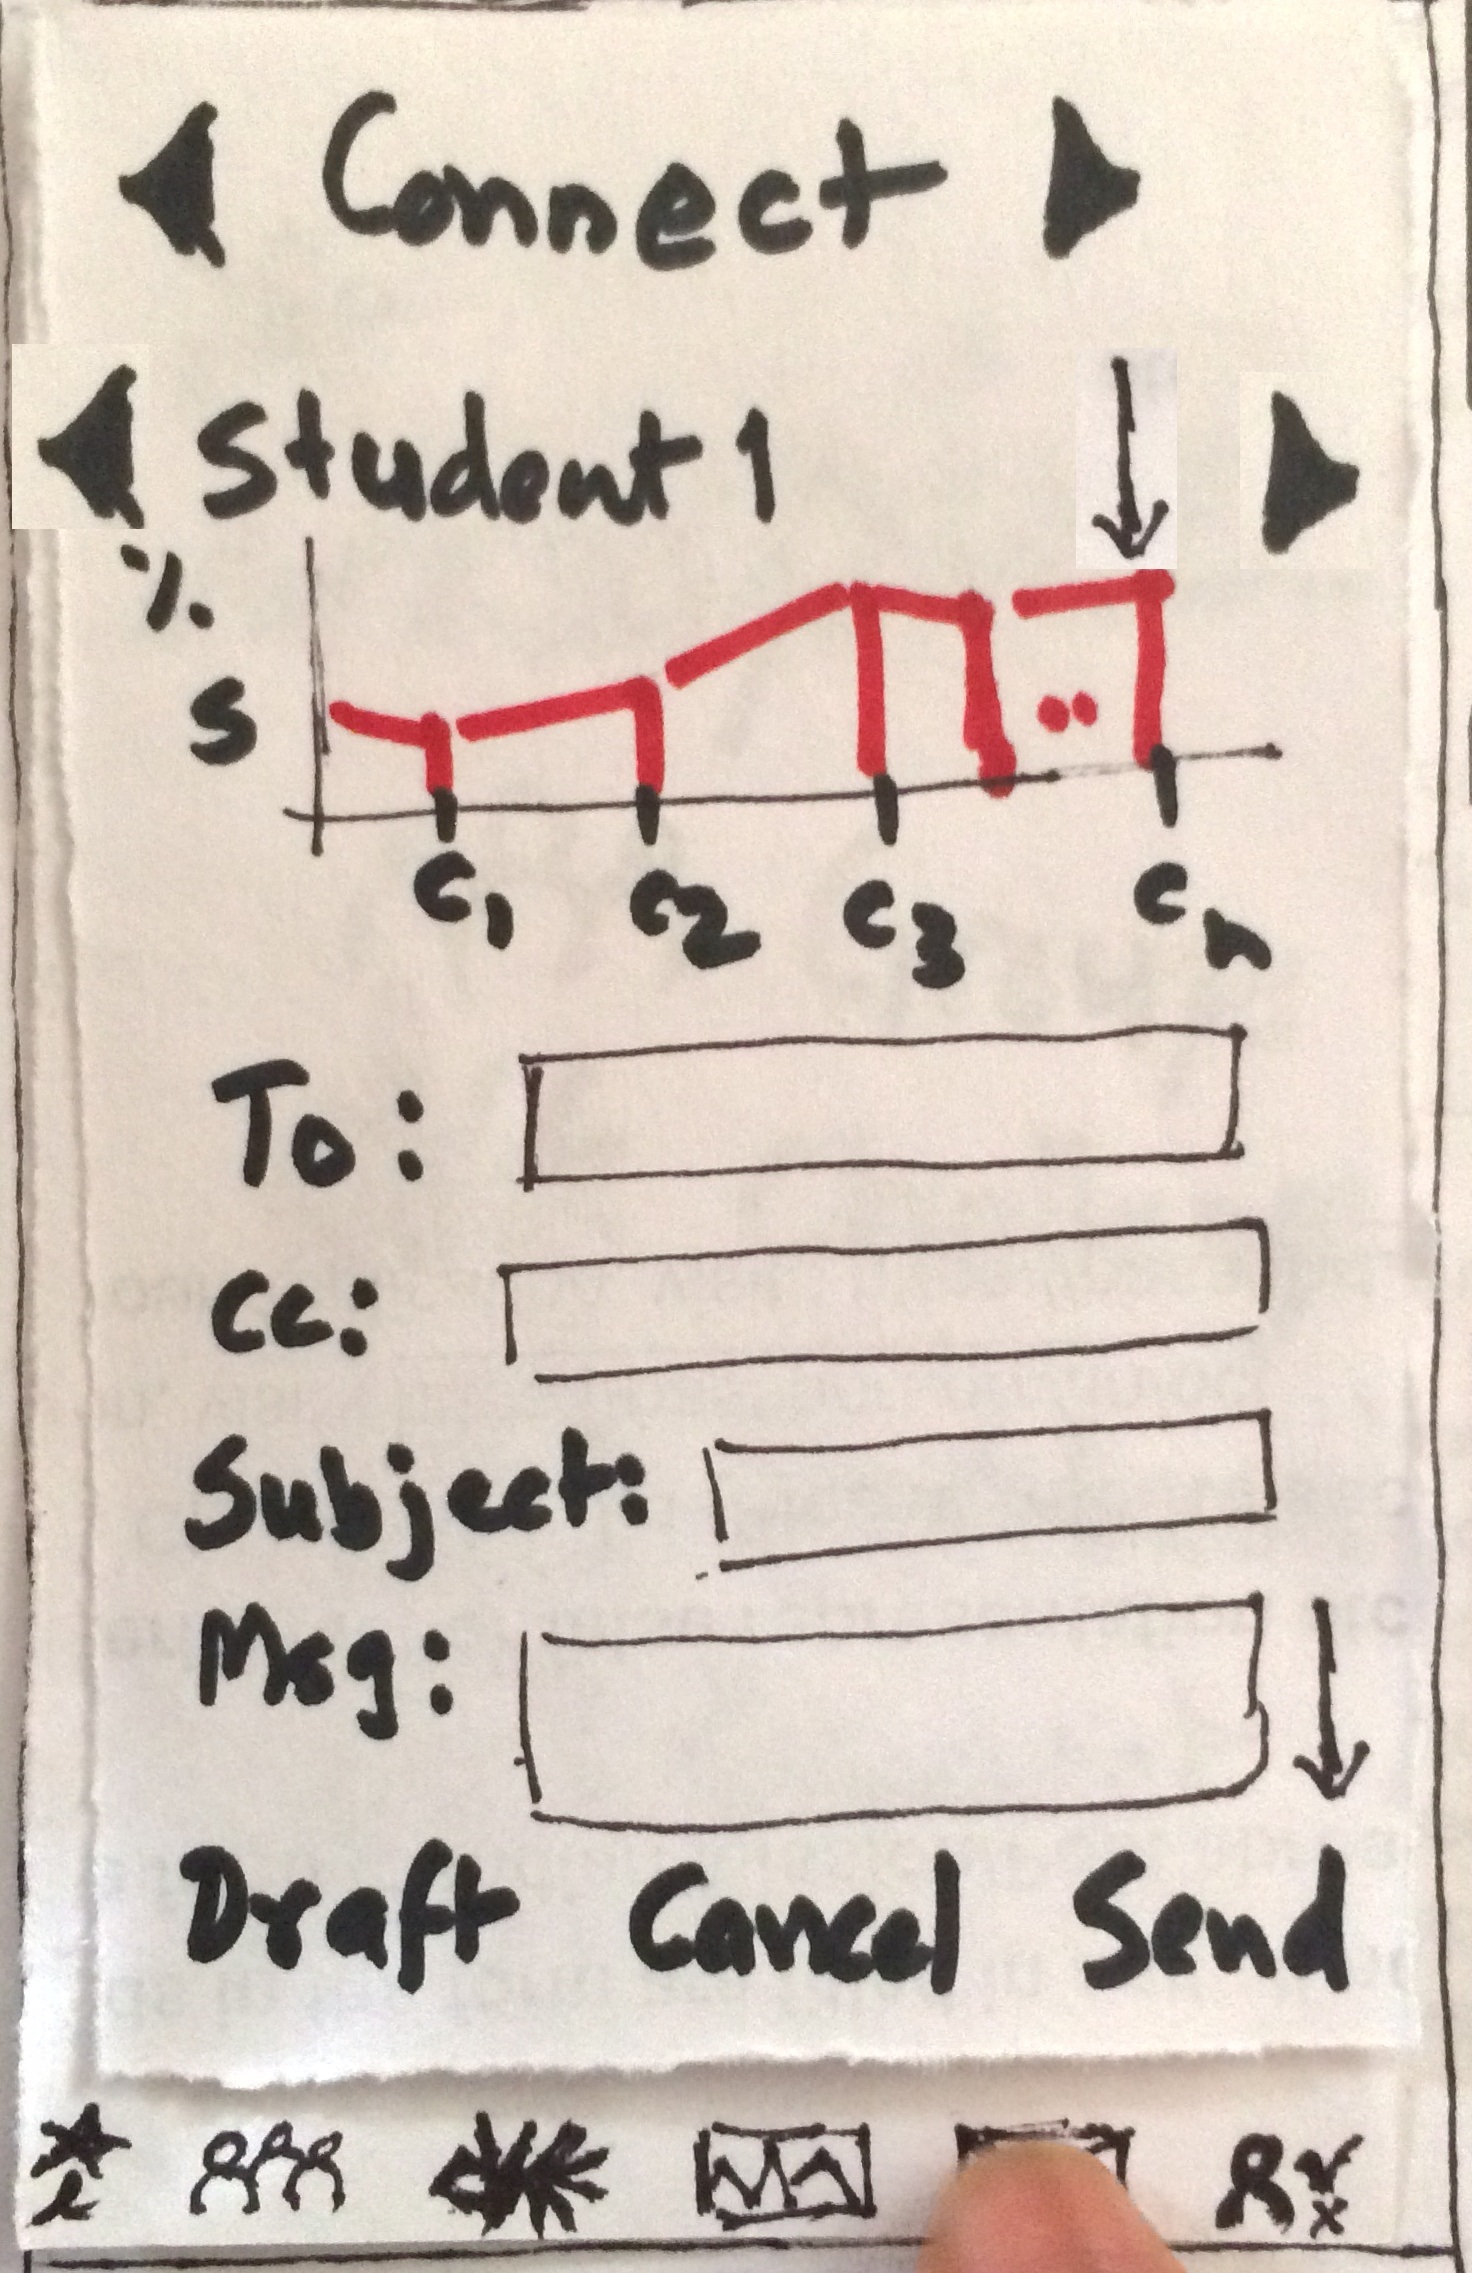 Connect
Student 1
%
S
C1 C2 C3 Cn
To:
CC:
Subject:
Msg:
Draft Cancel Send